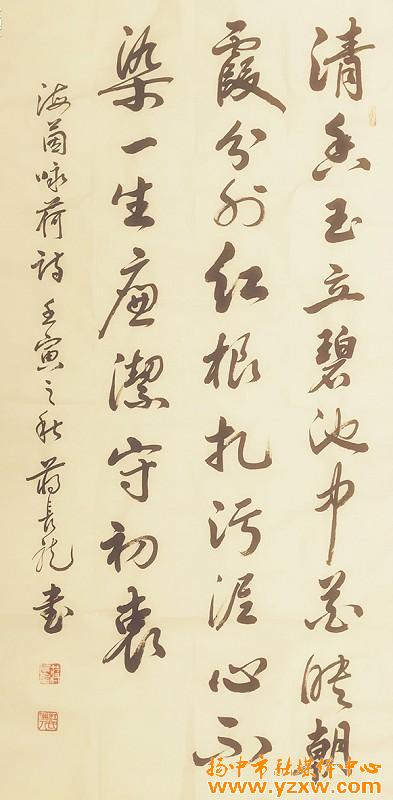 清香玉立碧池中花映朝
霞分外红根扎污泥心不
染一生廉潔守初衷
海茵咏荷诗壬寅之秋蒋長龙書
扬中市融媒体中心
www.yzxw.com